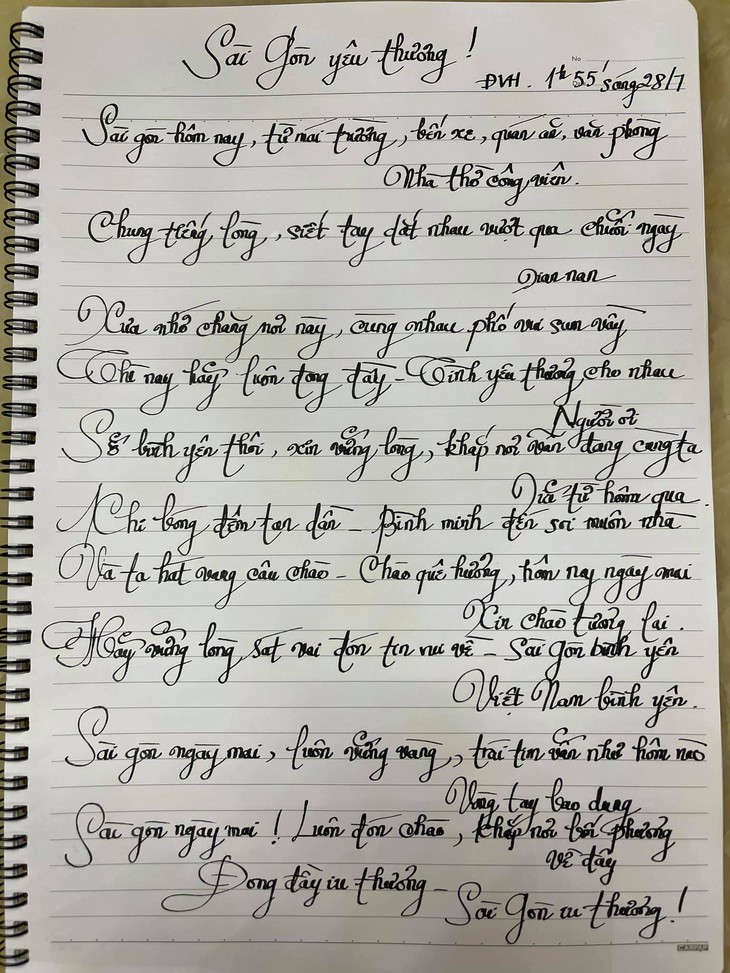 Sài Gòn yêu thương !
No
ĐVH . 1h 55' sáng 28/7
Sài gòn hôm nay, từ mái trường, bến xe, quán ăn, văn phòng
Nhà thờ công viên.
Chung tiếng lòng, siết tay dắt nhau vượt qua chuỗi ngày
Gian nan
Xưa nhớ chăng nơi này, cùng nhau phố vui sum vầy
Thì nay hãy luôn đong đầy - Tình yêu thương cho nhau
Người ơi
Sẽ bình yên thôi, xin vững lòng, khắp nơi vẫn đang cùng ta
Giữ từ hôm qua.
Khi bóng đêm tan dần - Bình minh đến soi muôn nhà
Và ta hát vang câu chào - Chào quê hương, hôm nay ngày mai
Xin chào tương lai.
Hãy vững lòng sát vai đón tin vui về - Sài gòn bình yên
Việt Nam bình yên.
Sài gòn ngày mai, luôn vững vàng, trái tim vẫn như hôm nào
Vòng tay bao dung
Sài gòn ngày mai ! Luôn đón chào, khắp nơi bốn phương
về đây
Đong đầy iu thương -
Sài Gòn iu thương !
CAMPAP